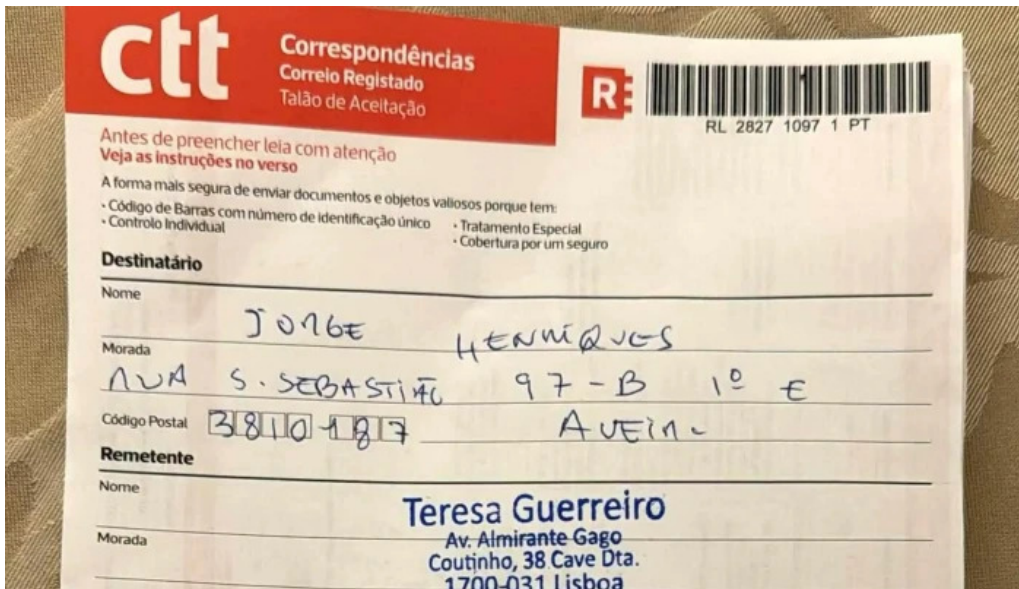 ctt
Correspondências
Correio Registado
Talão de Aceitação
R
RL 2827 1097 1 PT
Antes de preencher leia com atenção
Veja as instruções no verso
A forma mais segura de enviar documentos e objetos valiosos porque tem:
· Código de Barras com número de identificação único
· Controlo Individual
· Tratamento Especial
· Cobertura por um seguro
Destinatário
Nome
JORGE HENRIQUES
Morada
RUA S. SEBASTIÃO 97-B 1º E
Código Postal 3810-187 AVEIRO
Remetente
Nome
Teresa Guerreiro
Morada
Av. Almirante Gago
Coutinho, 38 Cave Dta.
1700-031 Lisboa